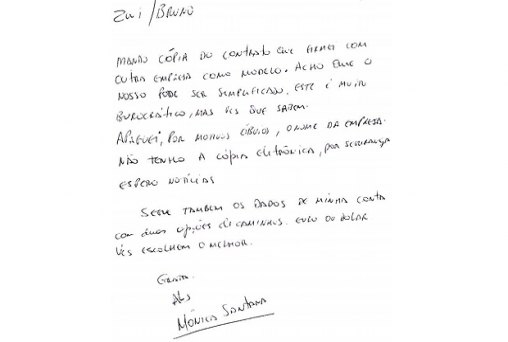 Zui/BRUNO
MANDO CÓPIA DO CONTRATO QUE FIRMEI COM
OUTRA EMPRESA COMO MODELO. ACHO QUE O
NOSSO PODE SER SIMPLIFICADO. ESTE É MUITO
BUROCRÁTICO, MAS VCS QUE SABEM.
APAGUEI, POR MOTIVOS ÓBVIOS, O NOME DA EMPRESA.
NÃO TENHO A CÓPIA ELETRÔNICA, POR SEGURANÇA
ESPERO NOTÍCIAS
SEGUE TAMBÉM OS DADOS DE MINHA CONTA
COM DUAS OPÇÕES DE CAMINHOS. EURO OU DOLAR
VCS ESCOLHEM O MELHOR.
GRATA.
ABS
MÔNICA SANTANA